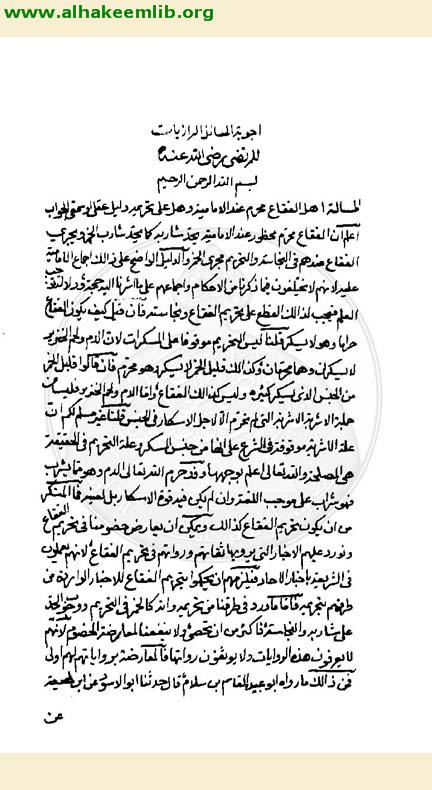 www.alhakeemlib.org
اجوبة المسائل الرازيات
للمرتضى رضي الله عنه
بسم الله الرحمن الرحيم
المسالة ا هل الفقاع محرم عند الامامية وهل على تحريمه دليل عقلي او سمعي الجواب
اعلم ان الفقاع محرم محظور عند الامامية يحد شاربه كما يحد شارب الخمر ويجري
الفقاع عندهم في النجاسة والتحريم مجرى الخمر والدليل الواضح على ذلك اجماع الامامية
عليه لانهم لا يختلفون فيما ذكرناه من الاحكام واجماعهم على ما اشرنا اليه حجة
العلم فيجب لذلك القطع على تحريم الفقاع ونجاسته فان قيل كيف يكون الفقاع
حراما وهو لا يسكر قلنا ليس التحريم موقوفا على المسكرات لان الدم ولحم الخنزير
لا يسكران وهما محرمان وكذلك قليل الخمر لا يسكر وهو محرم فان قالوا قليل الخمر
من الجنس الذي يسكر كثيره وليس كذلك الفقاع واما الدم ولحم الخنزير فليسا من
جملة الاشربة التي لم تحرم الا لاجل الاسكار في الجنس قلنا غير مسلم لكم ان
علة الاشربة موقوفة في الشرع على انها من جنس المسكر وعلة التحريم في الحقيقة
هي المصلحة والله تعالى اعلم بوجهها وقد حرم الله تعالى الدم وهو مما يشرب
فهو شراب على موجب اللغة وان لم يكن فيه قوة الاسكار بل لعينه فما المنكر
من ان يكون تحريم الفقاع كذلك ويمكن ان يعارض خصومنا في تحريم الفقاع
ونورد عليهم الاخبار التي يرويها ثقاتهم ورواتهم في تحريم الفقاع لانهم يعملون
في الشريعة باخبار الاحاد فيلزمهم ان يحكموا بتحريم الفقاع للاخبار الواردة من
طرقهم بتحريمه فاما ما ورد في طرقنا من تحريمه وانه كالخمر في التحريم ووجوب الحد
على شاربه والنجاسة فاكثر من ان تحصى ولا ينفعنا المعارضة للخصوم لانهم
لا يعرفون هذه الروايات ولا يوثقون رواتها فالمعارضة برواياتهم لهم اولى
فمن ذلك ما رواه ابو عبيد القاسم بن سلام قال حدثنا ابو الاسود عن ابن لهيعة
عن